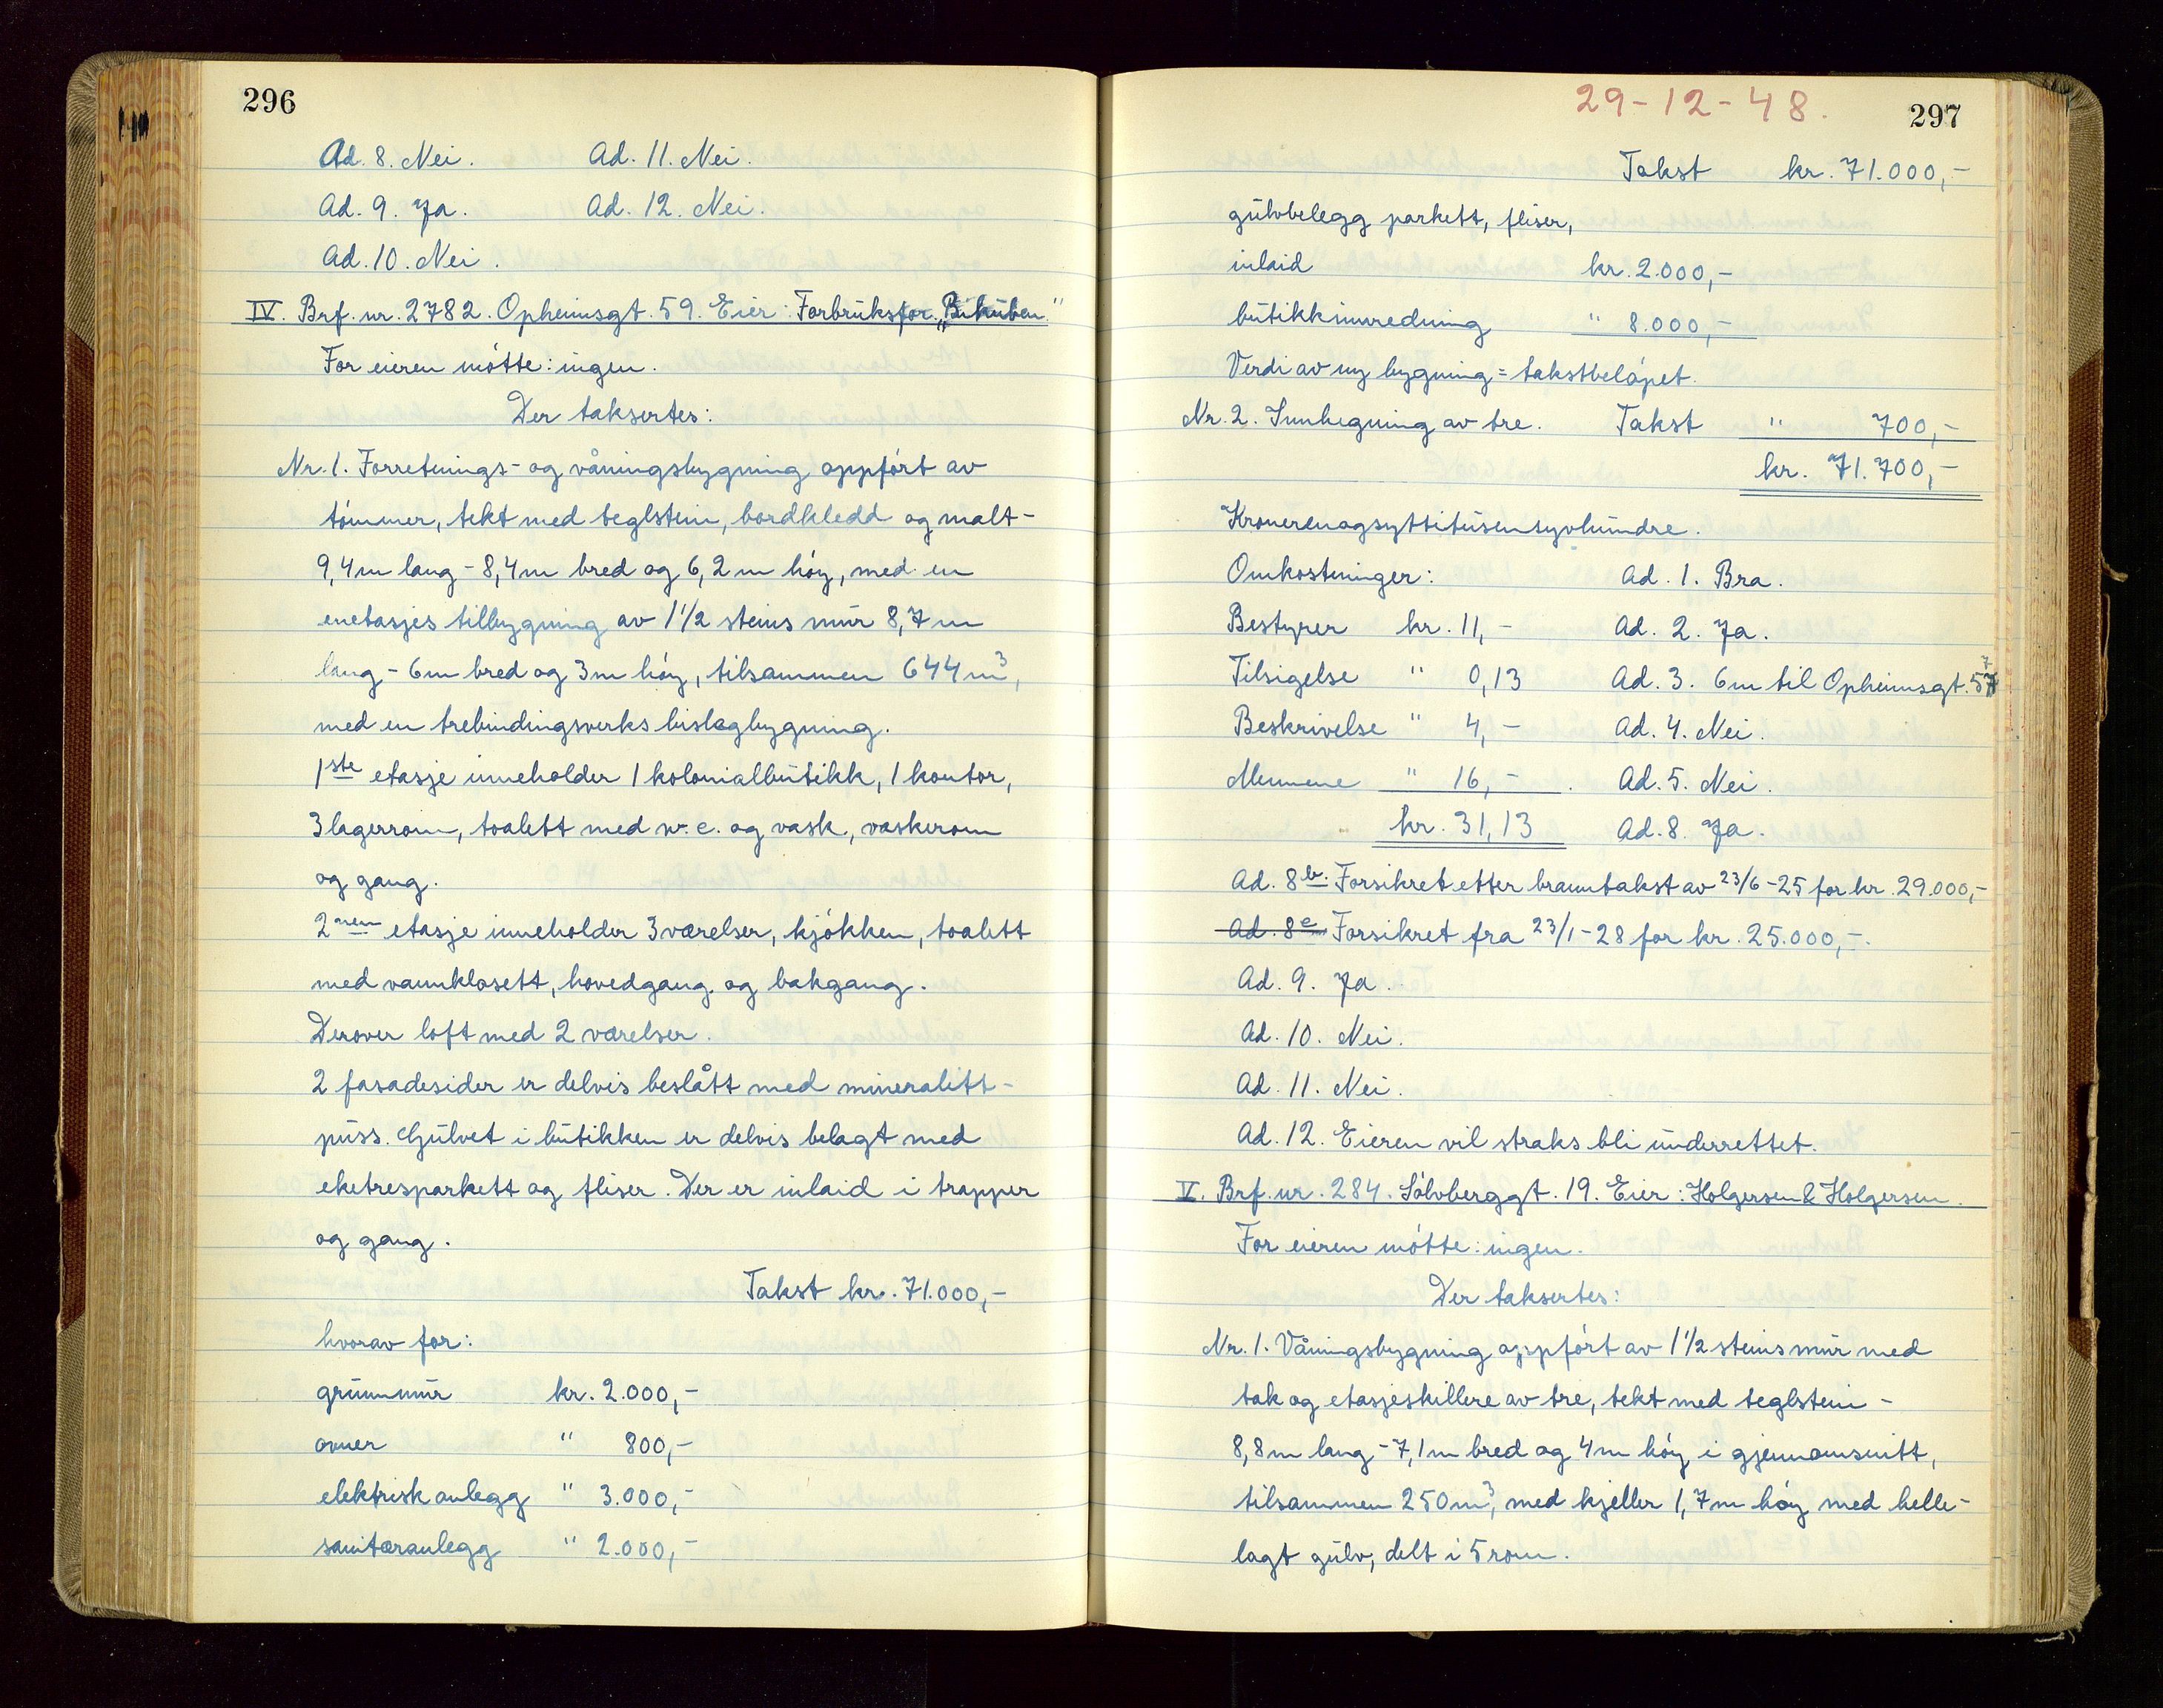 296
Ad. 8. Nei. Ad. 11. Nei.
Ad. 9. Ja. Ad. 12. Nei.
Ad. 10. Nei.
IV. Brf. nr. 2782. Opheimsgt. 59. Eier: Forbruksfor. „Bikuben"
For eieren møtte: ingen.
Der taksertes:
Nr. 1. Forretnings- og våningsbygning oppført av
tømmer, tekt med teglstein, bordkledd og malt-
9,4 m lang - 8,4 m bred og 6,2 m høy, med en
enetasjes tilbygning av 1 1/2 steins mur 8,7 m
lang - 6 m bred og 3 m høy, tilsammen 644 m³,
med en trebindingsverks bislagbygning.
1ste etasje inneholder 1 kolonialbutikk, 1 kontor,
3 lagerrom, toalett med w.c. og vask, vaskerom
og gang.
2nen etasje inneholder 3 værelser, kjøkken, toalett
med vannklosett, hovedgang og bakgang.
Derover loft med 2 værelser.
2 fasadesider er delvis beslått med mineralitt-
puss. Gulvet i butikken er delvis belagt med
eketresparkett og fliser. Der er inlaid i trapper
og gang.
Takst kr. 71.000,-
hvorav for:
grunnmur kr. 2.000,-
ovner " 800,-
elektrisk anlegg " 3.000,-
sanitæranlegg " 2.000,-
29-12-48.
297
Takst kr. 71.000,-
gulvbelegg parkett, fliser,
inlaid kr. 2.000,-
butikkinnredning " 8.000,-
Verdi av ny bygning = takstbeløpet.
Nr. 2. Innhegning av tre. Takst " 700,-
kr. 71.700,-
Kronerenogsyttitusensyvhundre.
Omkostninger: Ad. 1. Bra.
Bestyrer kr. 11,- Ad. 2. Ja.
Tilsigelse " 0,13 Ad. 3. 6 m til Opheimsgt. 57
Beskrivelse " 4,- Ad. 4. Nei.
Mennene " 16,-. Ad. 5. Nei.
kr. 31,13 Ad. 8. Ja.
Ad. 8b. Forsikret etter branntakst av 23/6-25 for kr. 29.000,-
Ad. 8c Forsikret fra 23/1-28 for kr. 25.000,-.
Ad. 9. Ja.
Ad. 10. Nei.
Ad. 11. Nei.
Ad. 12. Eieren vil straks bli underrettet.
V. Brf. nr. 284. Sølvberggt. 19. Eier: Holgersen & Holgersen.
For eieren møtte: ingen.
Der taksertes:
Nr. 1. Våningsbygning oppført av 1 1/2 steins mur med
tak og etasjeskillere av tre, tekt med teglstein -
8,8 m lang - 7,1 m bred og 4 m høy i gjennomsnitt,
tilsammen 250 m³, med kjeller 1,7 m høy med helle-
lagt gulv, delt i 5 rom.